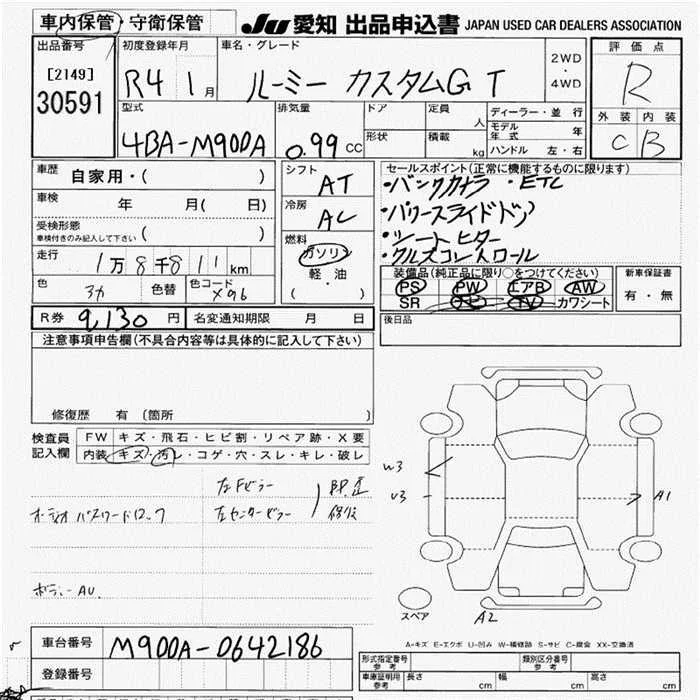 車内保管・守衛保管 JU 愛知 出品申込書 JAPAN USED CAR DEALERS ASSOCIATION
出品番号 初度登録年月 車名・グレード 評価点
[2149]
30591
R4 1月 ルーミー カスタムG T 2WD・4WD R
型式 排気量 ドア 定員 人 ディーラー・並行 外装 内装
4BA-M900A 0.99 CC 形状 積載 kg モデル年式 年 C B
ハンドル 左・右
車歴 自家用・( )
シフト AT
セールスポイント(正常に機能するものに限ります)
・バックカメラ ・ETC
・パワースライドドア
・シートヒター
・クルズコントロール
車検 年 月( 日)
冷房 AC
受検形態
車検付きのみ記入して下さい ( )
燃料 ガソリン
軽・油
( )
走行 1万8千811km
装備品(純正品に限り○をつけてください) 新車保証書
PS PW エアB AW
SR ナビ TV カワシート
有・無
色 色替 色コード X96
R券 9,130円 名変通知期限 月 日
後日品
注意事項申告欄(不具合内容等は具体的に記入して下さい)
修復歴 有 [箇所 ]
検査員記入欄
FW キズ・飛石・ヒビ割・リペア跡・X要
内装 キズ・汚レ・コゲ・穴・スレ・キレ・破レ
左Fピラー
左センターピラー
オーディオ パスワードロック
W3
U3
A1
スペア
A2
A-キズ E-エクボ U-凹み W-補修跡 S-サビ C-腐食 XX-交換済
車台番号 M900A-0642186
登録番号
形式指定番号 参考 類別区分番号 参考
車庫証明用 参考 長さ cm 幅 cm 高さ cm